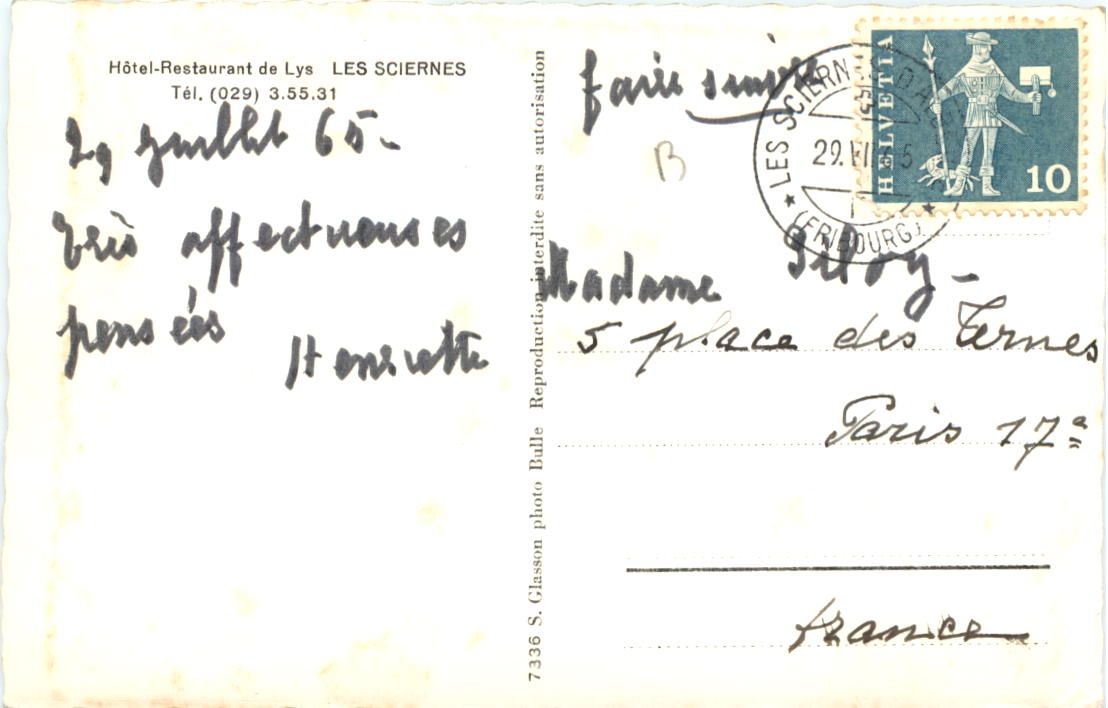 Hôtel-Restaurant de Lys LES SCIERNES
Tél. (029) 3.55.31
29 Juillet 65-
très affectueuses
pensées
Henriette
7336 S. Glasson photo Bulle Reproduction interdite sans autorisation
faire suivre
B
HELVETIA
10
LES SCIERNES D'A
29. VII
(FRIBOURG)
Madame
5 place des Ternes
Paris 17e
France